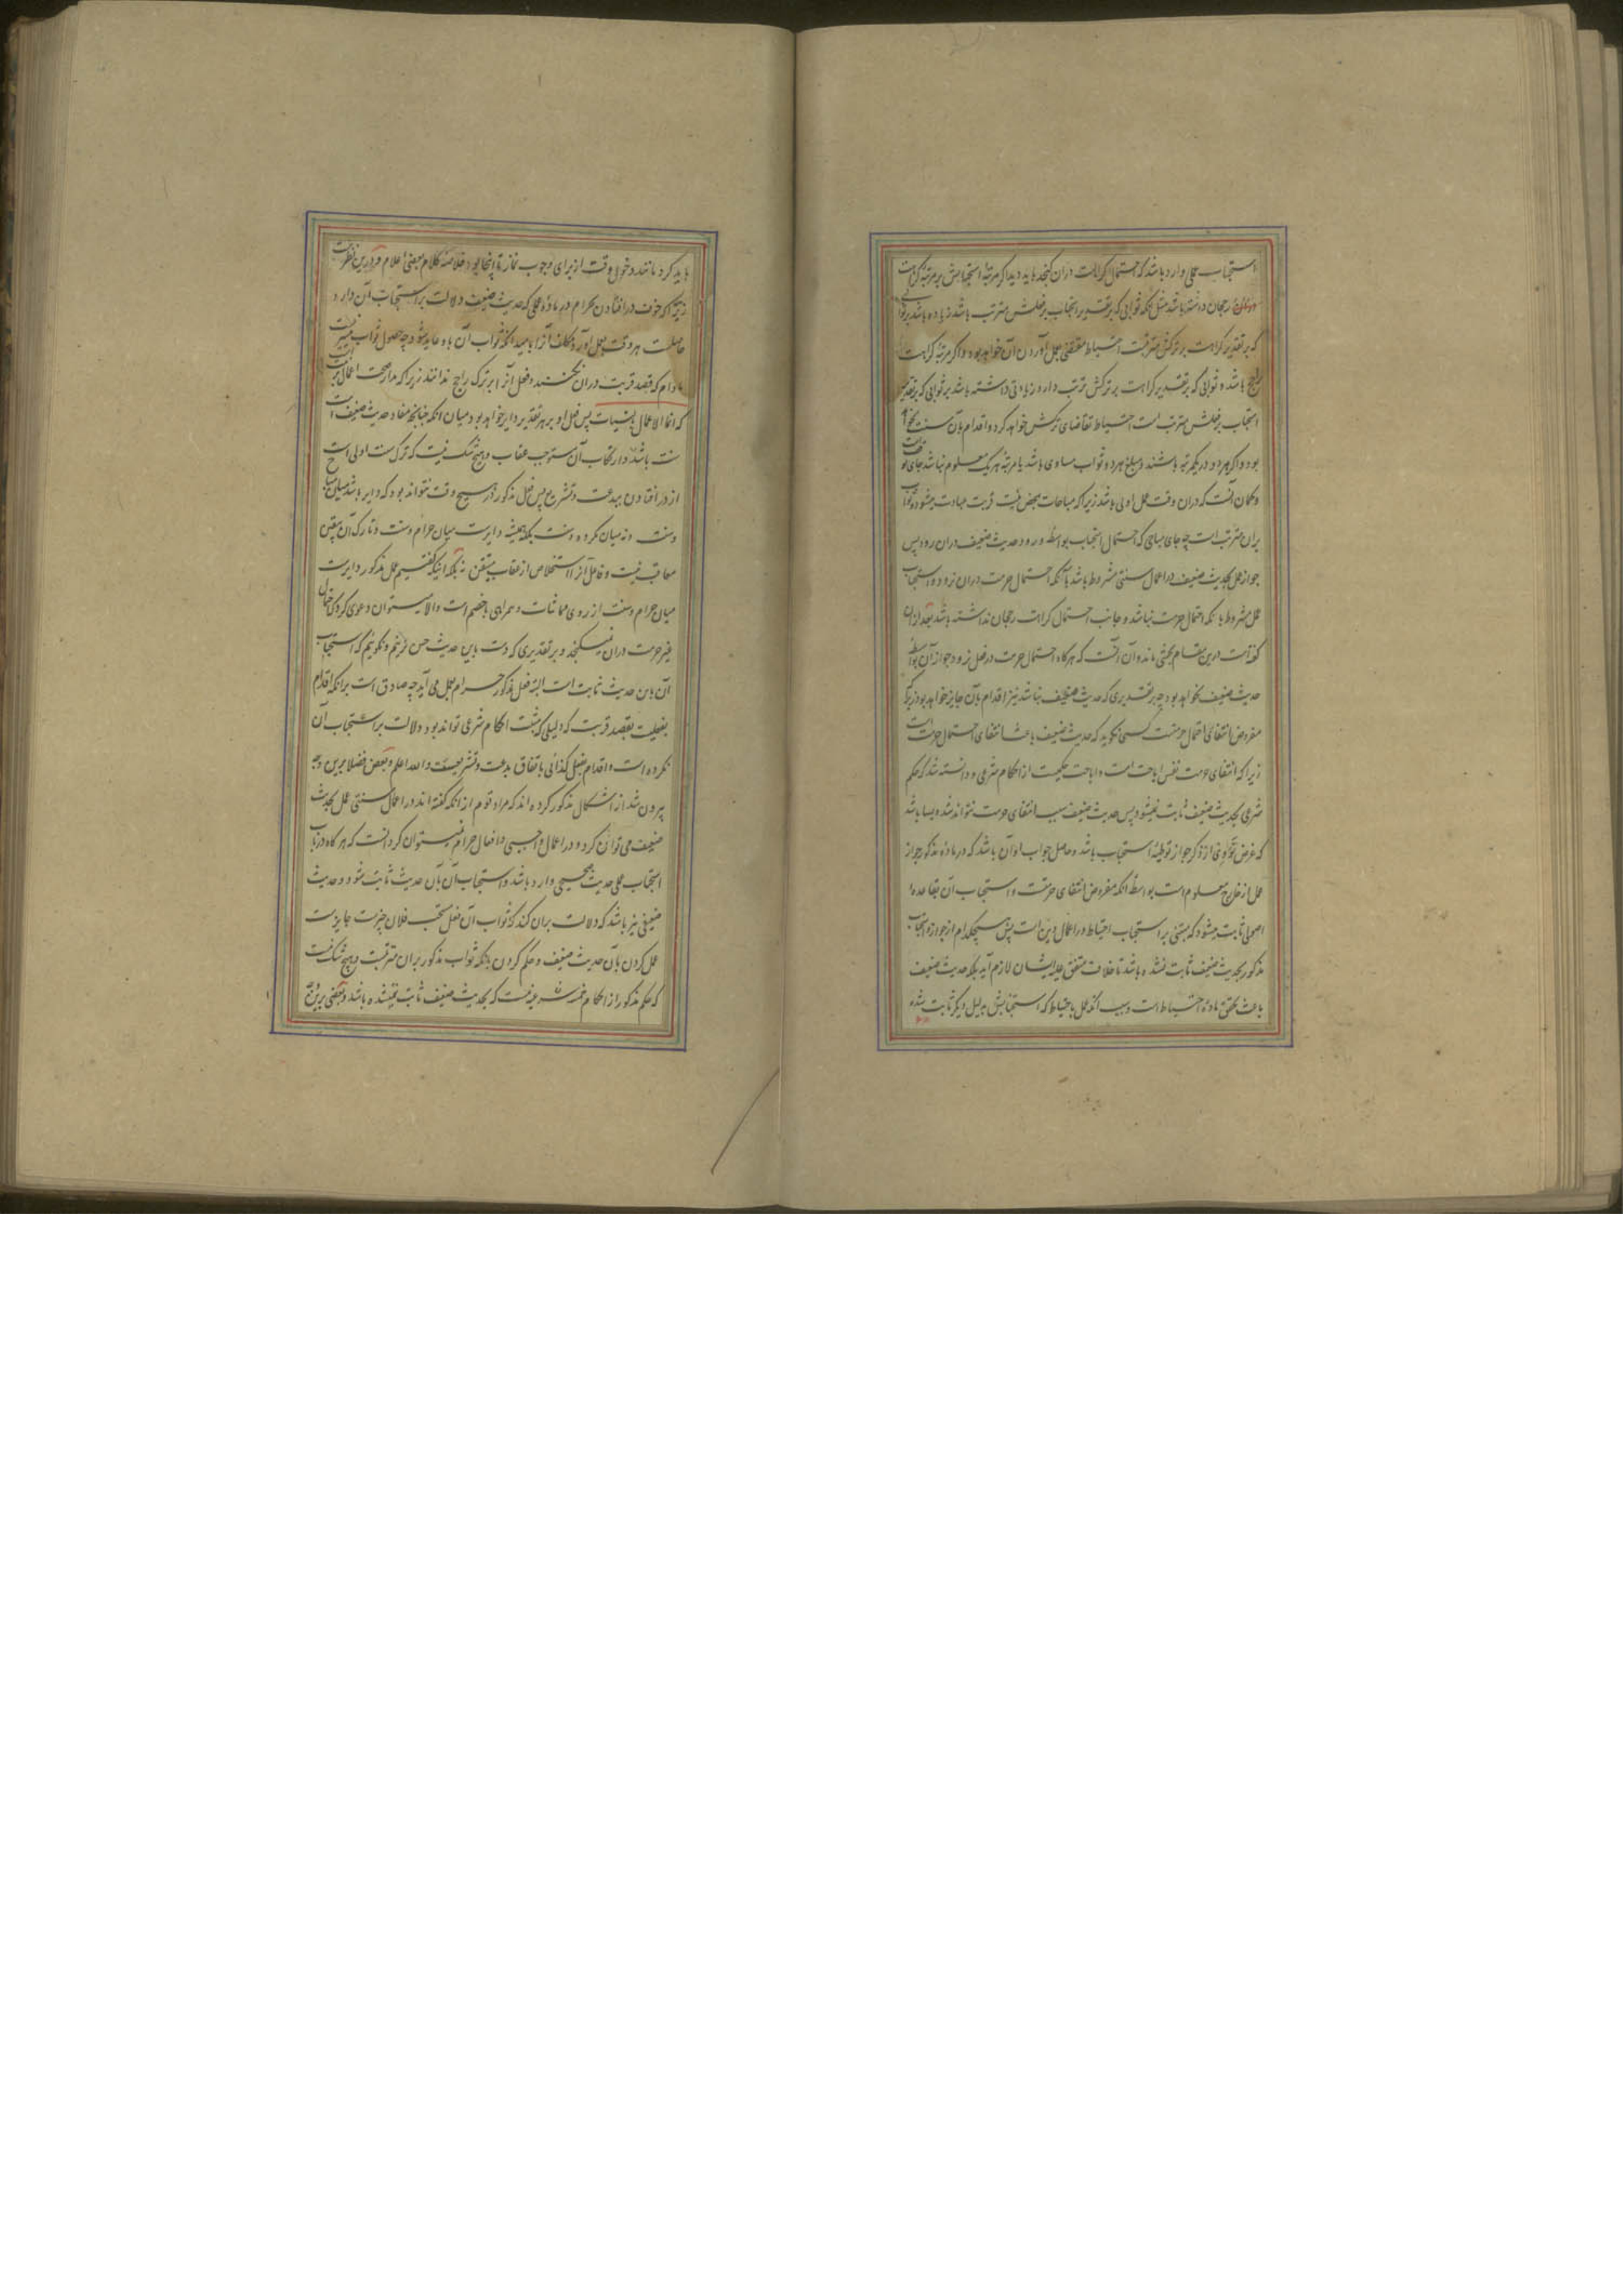 استحباب عملی وارد باشد که احتمال کراهت دران گنجد باید دید اگر مرتبهٔ استحبابش بر مرتبهٔ کراهت
رجحان داشته باشد مثل انکه ثوابی که بر تقدیر استحباب بر فعلش مترتب باشد زیاده باشد بر ثوابی
که بر تقدیر کراهت بر ترکش مترتبست احتیاط مقتضی بعمل آوردن آن خواهد بود و اگر مرتبهٔ کراهت
راجح باشد و ثوابی که بر تقدیر کراهت بر ترکش ترتب دارد زیادتی داشته باشد بر ثوابی که بر تقدیر
استحباب بر فعلش مترتب است احتیاط تقاضای ترکش خواهد کرد و اقدام بآن سنت نخواهد
بود و اگر هر دو در یکمرتبه باشند و مبلغ هر دو ثواب مساوی باشد یا مرتبهٔ هر یک معلوم نباشد جای توقفست
و گمان آنست که دران وقت عمل اولی باشد زیرا که مباحات بمحض نیت قربت عبادت میشود و ثواب
بران مترتب است چه جای مباحی که احتمال استحباب بواسطهٔ ورود حدیث ضعیف دران رود پس
جواز عمل بحدیث ضعیف در اعمال سنتی مشروط باشد بآنکه احتمال حرمت دران نرود و استحباب
عمل مشروط بانکه احتمال حرمت نباشد و جانب احتمال کراهت رجحان نداشته باشد بعد ازان
گفته است درین مقام بحثی ماند و آن آنست که هرگاه احتمال حرمت در فعل نرود جواز آن بواسطهٔ
حدیث ضعیف نخواهد بود چه بر تقدیری که حدیث ضعیف نباشد نیز اقدام بآن جایز خواهد بود زیرا که
مفروض انتفای احتمال حرمتست کسی نگوید که حدیث ضعیف باعث انتفای احتمال حرمت است
زیرا که انتفای حرمت نفس اباحت است و اباحت حکمیست از احکام شرعی و دانسته شد که حکم
شرعی بحدیث ضعیف ثابت نمیشود پس حدیث ضعیف سبب انتفای حرمت نتواند شد و بسا باشد
که غرض نواوی از ذکر جواز توطیهٔ استحباب باشد و حاصل جواب او آن باشد که در مادهٔ مذکور جواز
عمل از خارج معلوم است بواسطهٔ انکه مفروض انتفای حرمتست و استحباب آن بقاعدهٔ
اصولی ثابت میشود که مبتنی بر استحباب احتیاط در اعمال دین است پس هیچکدام از جواز و استحباب
مذکور بحدیث ضعیف ثابت نشده باشد تا خلاف متفق علیه ایشان لازم آید بلکه حدیث ضعیف
باعث تحقق مادهٔ احتیاط است و سبب انکه عمل باحتیاط که استحبابش بدلیل دیگر ثابت شده
باید کرد مانند دخول وقت از برای وجوب نماز تا اینجا بود خلاصهٔ کلام بعضی اعلام و درین نظرست
زیرا که خوف در افتادن بحرام در مادهٔ عملی که حدیث ضعیف دلالت بر استحباب آن دارد
حاصلست هر وقت بعمل آورد مکلف آنرا بامید انکه ثواب آن باو عاید شود چه حصول ثواب میسر نیست
مادام که قصد قربت دران نکنند و فعل آنرا بر ترک راجح ندانند زیرا که مدار صحت اعمال بر نیت است
که انما الاعمال بالنیات پس فعل او بر هر تقدیر دایر خواهد بود میان انکه چنانچه مفاد حدیث ضعیف است
سنت باشد و ارتکاب آن مستوجب عقاب و هیچ شک نیست که ترک سنت اولی است
از در افتادن ببدعت و تشریع پس فعل مذکور در هیچ وقت نتواند بود که دایر باشد میان مباح
و سنت و نه میان مکروه و سنت بلکه همیشه دایرست میان حرام و سنت و تارک آن بیقین
معاقب نیست و فاعل آنرا استخلاص از عقاب متیقن نه بلکه اینکه گفتیم عمل مذکور دایرست
میان حرام و سنت از روی مماشات و همراهی با خصم است و الا میتوان دعوی کرد که احتمال
غیر حرمت دران نمیگنجد و بر تقدیری که دست باین حدیث حسن نزنیم و نگوییم که استحباب
آن باین حدیث ثابت است البته فعل مذکور حرام بعمل می آید چه صادق است بر انکه اقدام
بفعلیست بقصد قربت که دلیلی که مثبت احکام شرعی تواند بود دلالت بر استحباب آن
نکرده است و اقدام بفعل کذائی باتفاق بدعت و تشریعست و الله اعلم و بعض فضلا برین وجه
بیرون شد از اشکال مذکور کرده اند که مراد قوم از انکه گفته اند در اعمال سنتی عمل بحدیث
ضعیف می توان کرد و در اعمال واجبی و افعال حرام نمیتوان کرد آنست که هرگاه در باب
استحباب عملی حدیث صحیحی وارد باشد و استحباب آن بآن حدیث ثابت شود و حدیث
ضعیفی نیز باشد که دلالت بران کند که ثواب آن فعل مستحب فلان چیزست جایزست
عمل کردن بآن حدیث ضعیف و حکم کردن بانکه ثواب مذکور بران مترتبست و هیچ شک نیست
که حکم مذکور از احکام خمسهٔ شرعیه نیست که بحدیث ضعیف ثابت نمیشده باشد و بعضی برین وجه